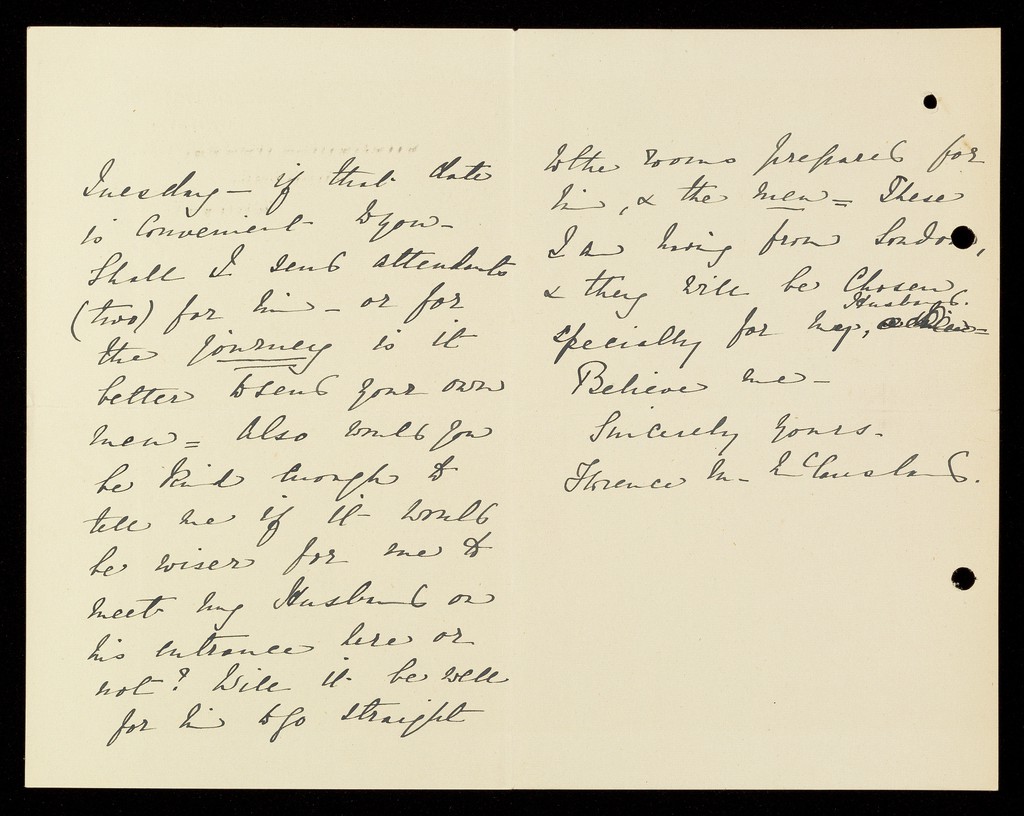 Tuesday - if that date
is Convenient to you -
Shall I send attendants
(two) for him - or for
the journey is it
better to send your own
men = Also would you
be kind enough to
tell me if it would
be wiser for me to
meet my Husband on
his entrance here or
not? Will it be well
for him to go straight
to the rooms prepared for
him, & the men = These
I am having from London,
& they will be Chosen
specially for my, Husband.
Believe me -
Sincerely Yours -
Florence M - McCausland.